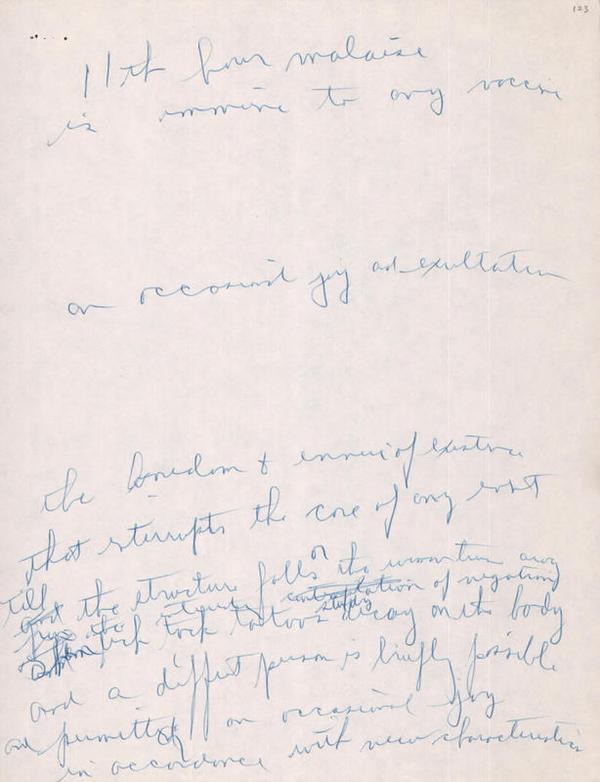 123
11th hour malaise
is immune to any vaccine
an occasional joy and exultation
the boredom & ennui of existence
that interrupts the core of any event
till the structure falls or the away
the steady study of negation
tick tock tattoos decay on the body
and a different person is briefly possible
and permitted an occasional joy
in accordance with new characteristics